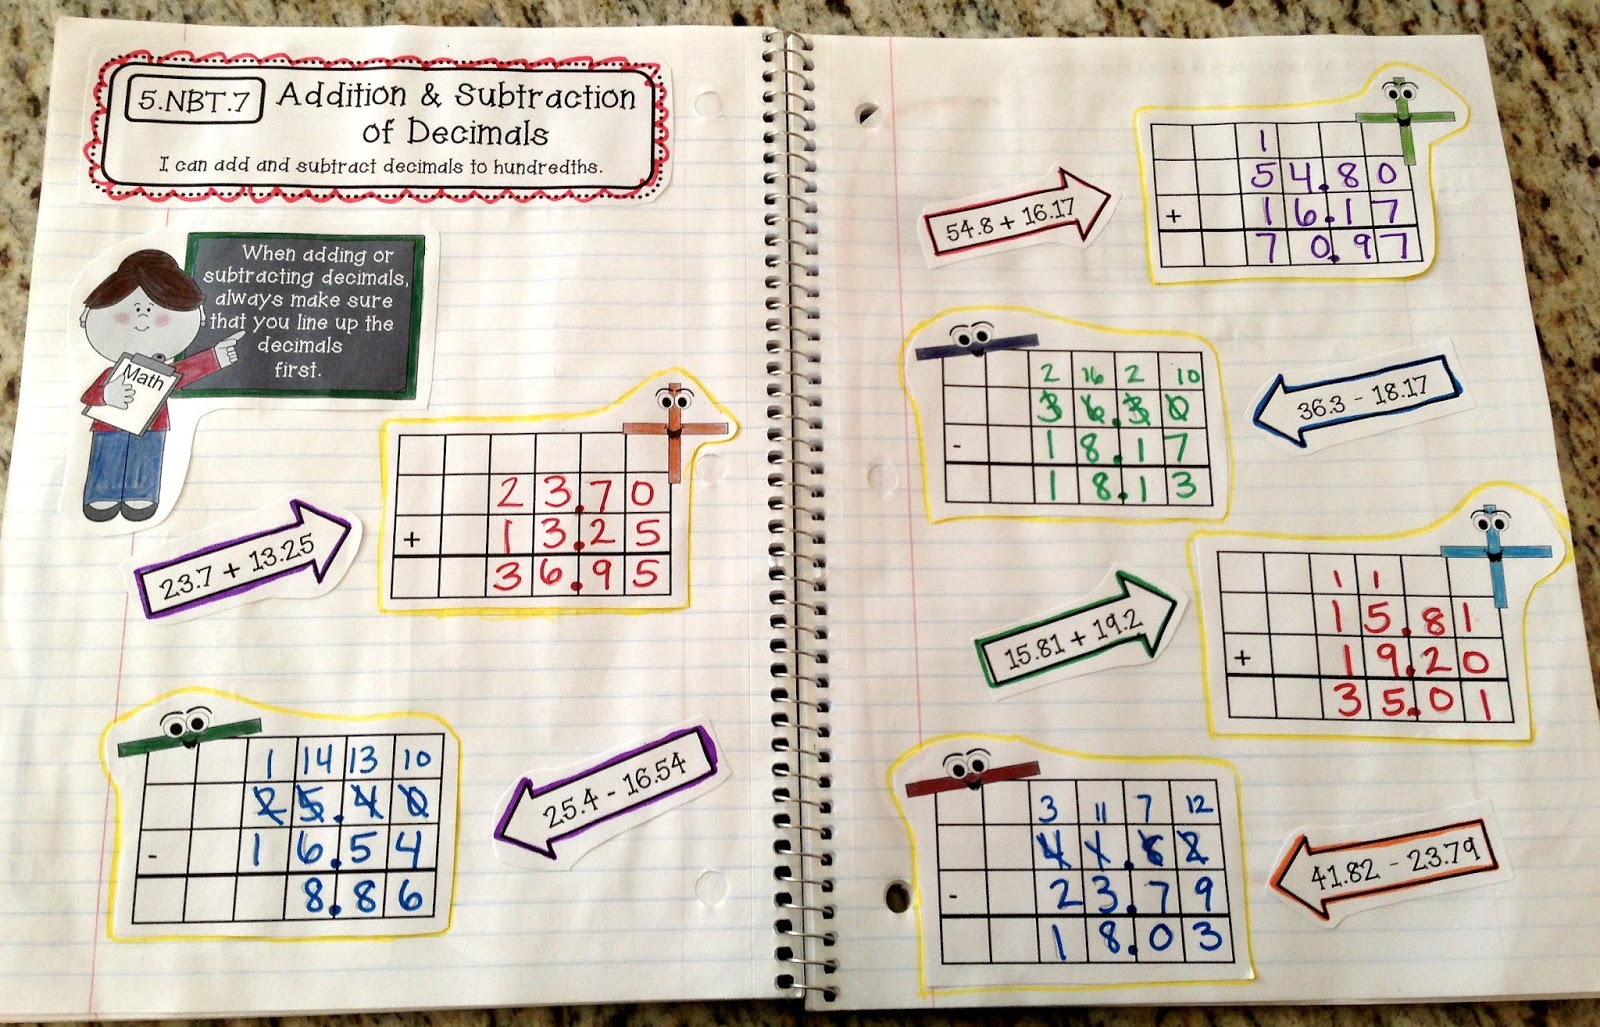 5.NBT.7
Addition & Subtraction
of Decimals
I can add and subtract decimals to hundredths.
When adding or
subtracting decimals,
always make sure
that you line up the
decimals
first.
Math
23.7 + 13.25
23.70
+ 13.25
36.95
25.4 - 16.54
1 14 13 10
25.40
- 16.54
8.86
54.8 + 16.17
1
54.80
+ 16.17
70.97
36.3 - 18.17
2 16 2 10
36.30
- 18.17
18.13
15.81 + 19.2
1 1
15.81
+ 19.20
35.01
41.82 - 23.79
3 11 7 12
41.82
- 23.79
18.03